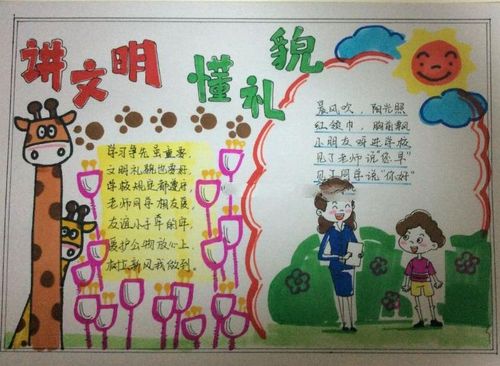 讲文明 懂礼貌
学习争先至重要，
文明礼貌也要好，
学校规定都遵守，
老师同学相友爱，
友谊小手牵的牢，
爱护公物放心上，
树立新风我做到。
晨风吹，阳光照
红领巾，胸前飘
小朋友呀进学校
见了老师说“您早”
见了同学说“你好”